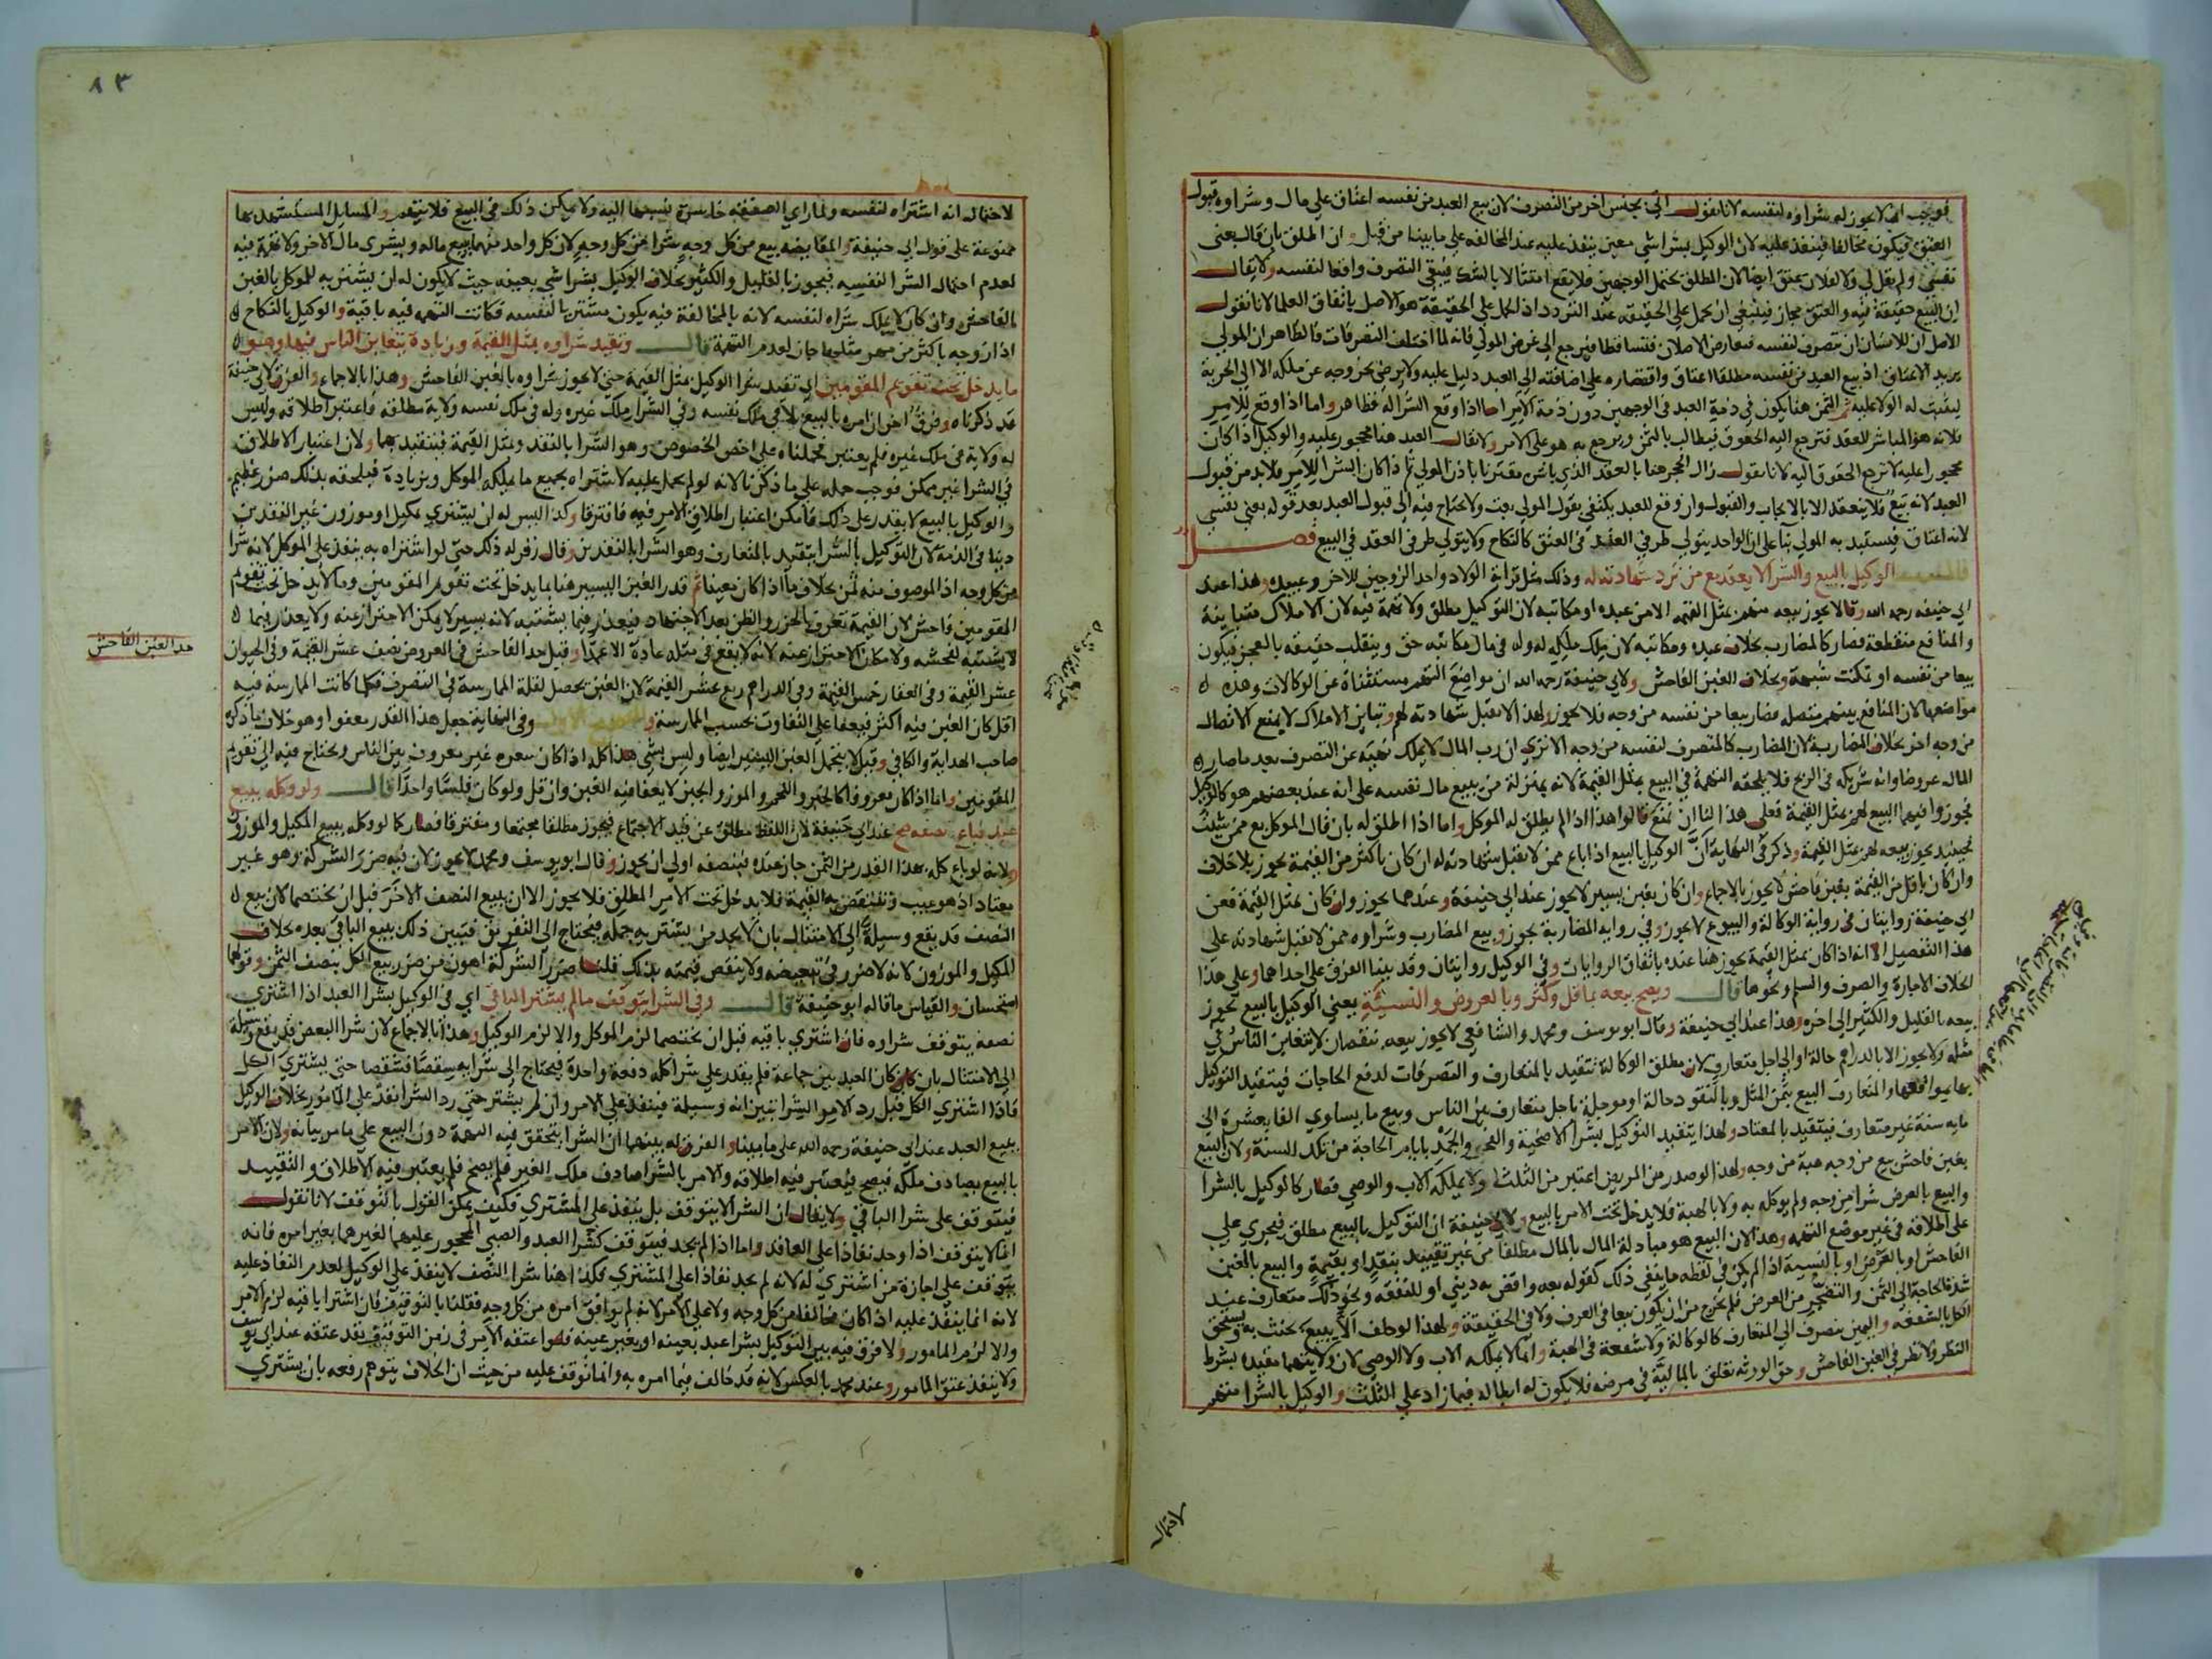 فوجب ان لا يجوز له شراوه لنفسه لانا نقول اتي بجنس اخر من التصرف لان بيع العبد من نفسه اعتاق علي مال وشراوه قبول
العتق فيكون مخالفا فينفذ عليه لان الوكيل بشرا شي معين ينفذ عليه عند المخالفة علي ما بينا من قبل وان اطلق بان قال بعني
نفسي ولم يقل لي ولا لفلان يعتق ايضا لان المطلق يحتمل الوجهين فلا يقع امتثالا بالشك فيبقي التصرف واقعا لنفسه ولا يقال
ان البيع حقيقة فيه والعتق مجاز فينبغي ان يحمل علي الحقيقة عند التردد اذ الحمل علي الحقيقة هو الاصل باتفاق العلما لانا نقول
الاصل ان للانسان ان يتصرف لنفسه فتعارض الاصلان فتساقطا فيرجع الي غرض المولي فانه لما اختلف التصرفات فالظاهر ان المولي
يريد الاعتاق اذ بيع العبد من نفسه مطلقا اعتاق واقتصاره علي اضافته الي العبد دليل عليه ولا يرضي بخروجه عن ملكه الا الي الحرية
ليثبت له الولا عليه ثم الثمن هنا يكون في ذمة العبد في الوجهين دون ذمة الآمر اما اذا وقع الشرا له فظاهر واما اذا وقع للآمر
فلانه هو المباشر للعقد فترجع اليه الحقوق فيطالب بالثمن ويرجع به هو علي الامر ولا يقال العبد هنا محجور عليه والوكيل اذا كان
محجورا عليه لا ترجع الحقوق اليه لانا نقول زال الحجر هنا بالعقد الذي باشره مقترنا باذن المولي ثم اذا كان الشرا للآمر فلا بد من قبول
العبد لانه بيع فلا ينعقد الا بالايجاب والقبول وان وقع للعبد يكتفي بقول المولي بعت ولا يحتاج فيه الي قبول العبد بعد قوله بعني نفسي
لانه اعتاق فيستبد به المولي بنا علي ان الواحد يتولي طرفي العقد في العتق كالنكاح ولا يتولي طرفي العقد في البيع فصل
قال الوكيل بالبيع والشرا لا يعقد مع من ترد شهادته له وذلك مثل قرابة الولاد واحد الزوجين للاخر وعبيده وهذا عند
ابي حنيفة رحمه الله وقالا يجوز بيعه منهم بمثل القيمة الا من عبده او مكاتبه لان التوكيل مطلق ولا تهمة فيه لان الاملاك متباينة
والمنافع منقطعة فصار كالمضارب بخلاف عبده ومكاتبه لان ملك ملكه له وله في مال مكاتبه حق وينقلب حقيقة بالعجز فيكون
بيعا من نفسه او تمكنت شبهة وبخلاف الغبن الفاحش ولابي حنيفة رحمه الله ان مواضع التهم مستثناة عن الوكالات وهذه
مواضعها لان المنافع بينهم متصلة فصار بيعا من نفسه من وجه فلا يجوز ولهذا لا تقبل شهادته لهم وتباين الاملاك لا يمنع الاتصال
من وجه اخر بخلاف المضاربة لان المضارب كالمتصرف لنفسه من وجه الا تري ان رب المال لا يملك نهيه عن التصرف بعد ما صار
المال عروضا وانه شريكه في الربح فلا يلحقه التهمة في البيع بمثل القيمة لانه بمنزلة من يبيع مال نفسه علي انه عند بعضهم هو كالوكيل
يجوزوا فيهما البيع لهم بمثل القيمة فعلي هذا لنا ان نمنع قالوا هذا اذا لم يطلق له الموكل واما اذا اطلق له بان قال الموكل بع ممن شئت
فحينئذ يجوز بيعه لهم بمثل القيمة وذكر في النهاية ان الوكيل بالبيع اذا باع ممن لا تقبل شهادته له ان كان باكثر من القيمة يجوز بلا خلاف
وان كان باقل من القيمة بغبن فاحش لا يجوز بالاجماع وان كان بغبن يسير لا يجوز عند ابي حنيفة وعندهما يجوز وان كان بمثل القيمة فعن
ابي حنيفة روايتان في رواية الوكالة والبيوع لا يجوز وفي رواية المضاربة يجوز وبيع المضارب وشراوه ممن لا تقبل شهادته علي
هذا التفصيل الا انه اذا كان بمثل القيمة يجوز هنا عنده باتفاق الروايات وفي الوكيل روايتان وقد بينا الفرق علي احداهما وعلي هذا
الخلاف الاجارة والصرف والسلم ونحوها قال ويصح بيعه بما قل وكثر وبالعروض والنسيئة يعني الوكيل بالبيع يجوز
بيعه بالقليل والكثير الي اخره وهذا عند ابي حنيفة وقال ابو يوسف ومحمد والشافعي لا يجوز بيعه بنقصان لا يتغابن الناس في
مثله ولا يجوز الا بالدراهم حالة او الي اجل متعارف لان مطلق الوكالة تتقيد بالمتعارف والتصرفات لدفع الحاجات فيتقيد التوكيل
بها بمواقعها والمتعارف البيع بثمن المثل وبالنقود حالة او موجلة باجل متعارف بين الناس وبيع ما يساوي الفا بعشرة الي
مايه سنة غير متعارف فيتقيد بالمعتاد ولهذا يتقيد التوكيل بشرا الاضحية والفحم والجمد بايام الحاجة من تلك السنة ولان البيع
بغبن فاحش بيع من وجه هبة من وجه ولهذا لو صدر من المريض اعتبر من الثلث ولا يملكه الاب والوصي فصار كالوكيل بالشرا
والبيع بالعرض شرا من وجه ولم يوكله به ولا بالهبة فلا يدخل تحت الامر بالبيع ولابي حنيفة ان التوكيل بالبيع مطلق فيجري علي
علي اطلاقه في غير موضع التهمة وهذا لان البيع هو مبادلة المال بالمال مطلقا من غير تقييد بنقد او بقيمة والبيع بالغبن
الفاحش او بالعرض او بالنسيئة اذا لم يكن في لفظه ما ينفي ذلك كقوله بعه واقض به ديني او للنفقة ونحو ذلك متعارف عند
شدة الحاجة الي الثمن والتضجر من العرض فلم يخرج من ان يكون بيعا في العرف ولا في الحقيقة ولهذا لو حلف ألا يبيع يحنث به ويستحق
الكل بالشفعة واليمين ينصرف الي المتعارف كالوكالة ولا شفعة في الهبة وانما لا يملكه الاب ولا الوصي لان ولايتهما مقيدة بشرط
النظر ولا نظر في الغبن الفاحش وحق الورثة تعلق بالمالية في مرضه فلا يكون له ابطاله فيما زاد علي الثلث والوكيل بالشرا متهم
لاحتمال
٨٣
لاحتمال انه اشتراه لنفسه ولما راي الصفقة خاسرة نسبها اليه ولا يمكن ذلك في البيع فلا يتهم والمسايل المستشهد بها
ممنوعة علي قول ابي حنيفة والمقايضة بيع من كل وجه شرا من كل وجه لان كل واحد منهما يبيع ماله ويشري مال الاخر ولا تهمة فيه
لعدم احتمال الشرا لنفسه فيجوز بالقليل والكثير بخلاف الوكيل بشرا شي بعينه حيث لا يكون له ان يشتريه للموكل بالغبن
الفاحش وان كان لا يملك شراه لنفسه لانه بالمخالفة فيه يكون مشتريا لنفسه فكانت التهمة فيه باقية والوكيل بالنكاح
اذا زوجه باكثر من مهر مثلها جاز لعدم التهمة قال وتقيد شراوه بمثل القيمة وزيادة يتغابن الناس فيها وهو
ما يدخل تحت تقويم المقومين اي تقيد شرا الوكيل بمثل القيمة حتي لا يجوز شراوه بالغبن الفاحش وهذا بالاجماع والفرق لابي حنيفة
قد ذكرناه وفرق اخر ان امره بالبيع يلاقي ملك نفسه وفي الشرا ملك غيره وله في ملك نفسه ولاية مطلقة فاعتبر اطلاقه وليس
له ولاية في ملك غيره فلم يعتبر فحملناه علي اخص الخصوص وهو الشرا بالنقد وبمثل القيمة فيتقيد بهما ولان اعتبار الاطلاق
في الشرا غير ممكن فوجب حمله علي ما ذكرنا لانه لو لم يحمل عليه لاشتراه بجميع ما يملكه الموكل وبزيادة فيلحقه بذلك ضرر عظيم
والوكيل بالبيع لا يقدر علي ذلك فامكن اعتبار اطلاق الامر فيه فافترقا وكذا ليس له ان يشتري بمكيل او موزون غير النقدين
دينا في الذمة لان التوكيل بالشرا يتقيد بالمتعارف وهو الشرا بالنقدين وقال زفر له ذلك حتي لو اشتراه به ينفذ علي الموكل لانه شرا
من كل وجه اذ الموصوف منه ثمن بخلاف ما اذا كان معينا ثم قدر الغبن اليسير هنا بما يدخل تحت تقويم المقومين وما لا يدخل تحت تقويم
المقومين فاحش لان القيمة تعرف بالحزر والظن بعد الاجتهاد فيعذر فيما يشتبه لانه يسير لا يمكن الاحتراز عنه ولا يعذر فيما
لا يشتبه لفحشه ولامكان الاحتراز عنه لانه لا يقع في مثله عادة الا عمدا وقيل حد الفاحش في العروض نصف عشر القيمة وفي الحيوان
حد الغبن الفاحش
عشر القيمة وفي العقار خمس القيمة وفي الدراهم ربع عشر القيمة لان الغبن يحصل لقلة الممارسة في التصرف فكلما كانت الممارسة فيه
اقل كان الغبن فيه اكثر فيعفا علي التفاوت بحسب الممارسة والصحيح الاول وفي النهاية جعل هذا القدر معفوا وهو خلاف ما ذكره
صاحب الهداية والكافي وقيل لا يتحمل الغبن اليسير ايضا وليس بشي هذا كله اذا كان سعره غير معروف بين الناس ويحتاج فيه الي تقويم
المقومين واما اذا كان معروفا كالخبز واللحم والموز والجبن لا يعفا فيه الغبن وان قل ولو كان فلسا واحدا قال ولو وكله ببيع
عبد فباع نصفه صح عند ابي حنيفة لان اللفظ مطلق عن قيد الاجتماع فيجوز مطلقا مجتمعا ومفترقا فصار كما لو وكله ببيع المكيل والموزون
ولانه لو باع كله بهذا القدر من الثمن جاز عنده فنصفه اولي ان يجوز وقال ابو يوسف ومحمد لا يجوز لان فيه ضرر الشركة وهو غير
معتاد اذ هو عيب وتنتقص به القيمة فلا يدخل تحت الامر المطلق فلا يجوز الا ان يبيع النصف الاخر قبل ان يختصما لان بيع
النصف قد يقع وسيلة الي الامتثال بان لا يجد من يشتريه جملة فيحتاج الي التفريق فيتبين ذلك ببيع الباقي بعده بخلاف
المكيل والموزون لانه لا ضرر في تبعيضه ولا ينقص قيمته بذلك قلنا ضرر الشركة اهون من ضرر بيع الكل بنصف الثمن وقولهما
استحسان والقياس ما قاله ابو حنيفة قال وفي الشرا يتوقف ما لم يشتر الباقي اي في الوكيل بشرا العبد اذا اشتري
نصفه يتوقف شراوه فان اشتري باقيه قبل ان يختصما لزم الموكل والا لزم الوكيل وهذا بالاجماع لان شرا البعض قد يقع وسيلة
الي الامتثال بان كان كان العبد بين جماعة فلم يقدر علي شرا كله دفعة واحدة فيحتاج الي شرايه شقصا فشقصا حتي يشتري الكل
فاذا اشتري الكل قبل رد الامر الشرا تبين انه وسيلة فينفذ علي الامر وان لم يشتر حتي رد الشرا نفذ علي المامور بخلاف الوكيل
ببيع العبد عند ابي حنيفة رحمه الله علي ما بينا والفرق له بينهما ان الشرا يتحقق فيه التهمة دون البيع علي ما مر بيانه ولان الامر
بالبيع يصادف ملكه فيصح فيعتبر فيه اطلاقه والامر بالشرا صادف ملك الغير فلم يصح فلم يعتبر فيه الاطلاق والتقييد
فيتوقف علي شرا الباقي ولا يقال ان الشرا لا يتوقف بل ينفذ علي المشتري فكيف يمكن القول بالتوقف لانا نقول
انما لا يتوقف اذا وجد نفاذا علي العاقد واما اذا لم يجد فيتوقف كشرا العبد والصبي المحجور عليهما لغيرهما بغير امره فانه
يتوقف علي اجازة من اشتري له لانه لم يجد نفاذا علي المشتري فكذا هنا شرا النصف لا ينفذ علي الوكيل لعدم النفاذ عليه
لانه انما ينفذ عليه اذا كان مخالفا من كل وجه ولا علي الآمر لانه لم يوافق امره من كل وجه فقلنا بالتوقف فان اشترا باقيه لزم الامر
والا لزم المامور ولا فرق فيه بين التوكيل بشرا عبد بعينه او بغير عينه فلو اعتقه الآمر في زمن التوقف نفذ عتقه عند ابي يوسف
ولا ينفذ عتق المامور وعند محمد بالعكس لانه قد خالف فيما امره به وانما توقف عليه من حيث ان الخلاف يتوهم رفعه بان يشتري